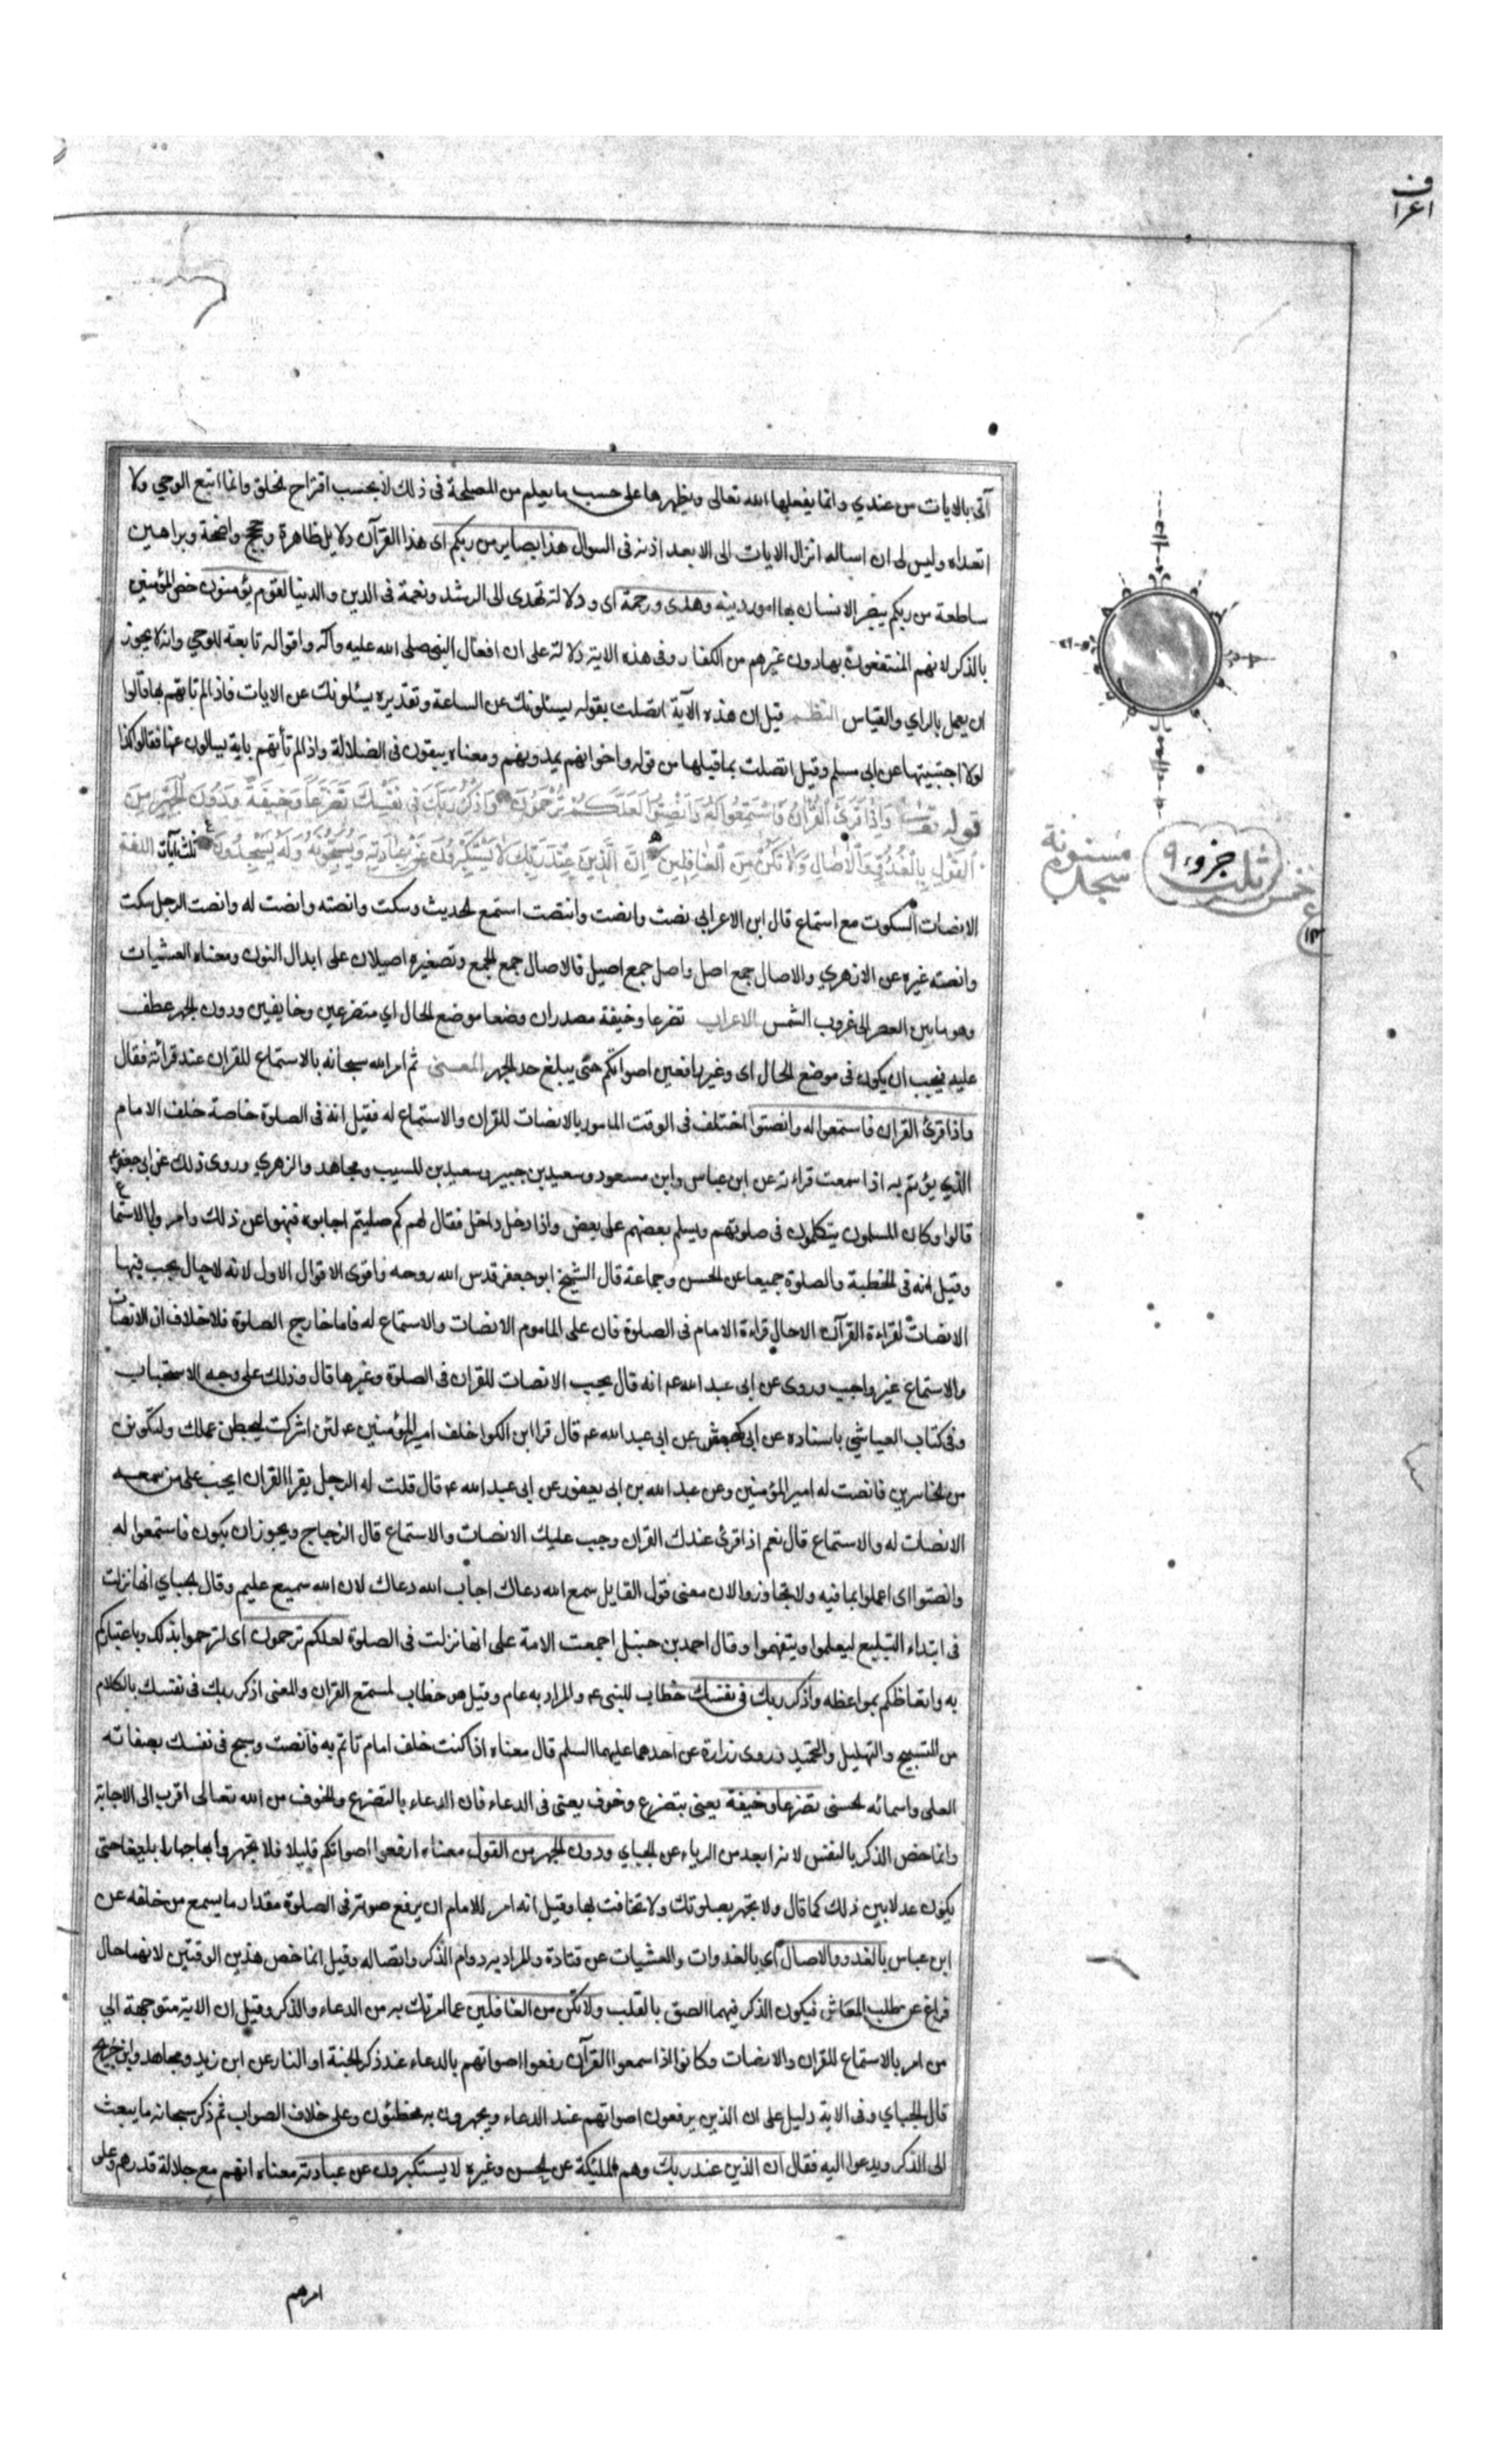 اعراف
آتى بالايات من عندي وانما يفعلها الله تعالى ويظهرها على حسب ما يعلم من المصلحة فى ذلك لا بحسب اقتراح الخلق وانما اتبع الوحي ولا
اتعداه وليس لى ان اساله انزال الايات الى الا بعد اذنه فى السوال هذا بصاير من ربكم اى هذا القرآن دلايل ظاهرة وحجج واضحة وبراهين
ساطعة من ربكم يبصر الانسان بها امور دينه وهدى ورحمة اى ودلالة تهدى الى الرشد ونعمة فى الدين والدنيا لقوم يؤمنون خص المؤمنين
بالذكر لانهم المنتفعون بها دون غيرهم من الكفار وفى هذه الاية دلالة على ان افعال النبى صلى الله عليه وآله واقواله تابعة للوحي وانه لا يجوز
ان يعمل بالراي والقياس النظم قيل ان هذه الآية اتصلت بقوله يسئلونك عن الساعة وتقديره يسئلونك عن الايات فاذا لم تاتهم بها قالوا
لولا اجتبيتها عن ابى مسلم وقيل اتصلت بما قبلها من قوله واخوانهم يمدونهم ومعناه يبقون فى الضلالة واذا لم تأتهم باية يسالون عنها فقالوا كذا
قوله تعالى وَاِذَا قُرِئَ الْقُرْآنُ فَاسْتَمِعُوا لَهُ وَاَنْصِتُوا لَعَلَّكُمْ تُرْحَمُونَ وَاذْكُرْ رَبَّكَ فِى نَفْسِكَ تَضَرُّعًا وَخِيفَةً وَدُونَ الْجَهْرِ مِنَ
الْقَوْلِ بِالْغُدُوِّ وَالْاٰصَالِ وَلَا تَكُنْ مِنَ الْغَافِلِينَ اِنَّ الَّذِينَ عِنْدَ رَبِّكَ لَا يَسْتَكْبِرُونَ عَنْ عِبَادَتِهِ وَيُسَبِّحُونَهُ وَلَهُ يَسْجُدُونَ ثلث آيات اللغة
الانصات السكوت مع استماع قال ابن الاعرابى نصت وانصت وانتصت استمع الحديث وسكت وانصته وانصت له وانصت الرجل سكت
وانصته غيره عن الازهري والاصال جمع اصل واصل جمع اصيل فالاصال جمع الجمع وتصغيره اصيلان على ابدال النون ومعناه العشيات
وهو ما بين العصر الى غروب الشمس الاعراب تضرعا وخيفة مصدران وضعا موضع الحال اي متضرعين وخايفين ودون الجهر عطف
عليه فيجب ان يكون فى موضع الحال اى وغير رافعين اصواتكم حتى يبلغ حد الجهر المعنى ثم امر الله سبحانه بالاستماع للقران عند قرائته فقال
واذا قرئ القران فاستمعوا له وانصتوا اختلف فى الوقت المامور بالانصات للقران والاستماع له فقيل انه فى الصلوة خاصة خلف الامام
الذي يؤتم به اذا سمعت قراءته عن ابن عباس وابن مسعود وسعيد بن جبير وسعيد بن المسيب ومجاهد والزهري وروى ذلك عن ابى جعفر ع
قالوا وكان المسلمون يتكلمون فى صلوتهم ويسلم بعضهم على بعض واذا دخل داخل فقال لهم كم صليتم اجابوه فنهوا عن ذلك وامروا بالاستماع
وقيل انه فى الخطبة والصلوة جميعا عن الحسن وجماعة قال الشيخ ابو جعفر قدس الله روحه واقوى الاقوال الاول لانه لا حال يجب فيها
الانصات لقراءة القرآن الا حال قراءة الامام فى الصلوة فان على الماموم الانصات والاستماع له فاما خارج الصلوة فلا خلاف ان الانصات
والاستماع غير واجب وروى عن ابى عبد الله ع انه قال يجب الانصات للقران فى الصلوة وغيرها قال وذلك على وجه الاستحباب
وفى كتاب العياشي باسناده عن ابى كهمش عن ابى عبد الله ع قال قرا ابن الكوا خلف امير المؤمنين ع لئن اشركت ليحبطن عملك ولتكونن
من الخاسرين فانصت له امير المؤمنين وعن عبد الله بن ابى يعفور عن ابى عبد الله ع قال قلت له الرجل يقرا القران ايجب على من سمعه
الانصات له والاستماع قال نعم اذا قرئ عندك القران وجب عليك الانصات والاستماع قال الزجاج ويجوز ان يكون فاستمعوا له
وانصتوا اى اعملوا بما فيه ولا تجاوزوا لان معنى قول القايل سمع الله دعاك اجاب الله دعاك لان الله سميع عليم وقال الجباي انها نزلت
فى ابتداء التبليغ ليعلموا ويتفهموا وقال احمد بن حنبل اجمعت الامة على انها نزلت فى الصلوة لعلكم ترحمون اى لترحموا بذلك وباعتباركم
به واتعاظكم بمواعظه واذكر ربك فى نفسك خطاب للنبى ع والمراد به عام وقيل هو خطاب لمستمع القران والمعنى اذكر ربك فى نفسك بالكلام
من التسبيح والتهليل والتحميد وروى زرارة عن احدهما عليهما السلم قال معناه اذا كنت خلف امام تاتم به فانصت وسبح فى نفسك بصفاته
العلى واسمائه الحسنى تضرعا وخيفة يعنى بتضرع وخوف يعنى فى الدعاء فان الدعاء بالتضرع والخوف من الله تعالى اقرب الى الاجابة
وانما خص الذكر بالنفس لانه ابعد من الرياء عن الجباي ودون الجهر من القول معناه ارفعوا اصواتكم قليلا فلا تجهروا بها جهارا بليغا حتى
يكون عدلا بين ذلك كما قال ولا تجهر بصلوتك ولا تخافت بها وقيل انه امر للامام ان يرفع صوته فى الصلوة مقدار ما يسمع من خلفه عن
ابن عباس بالغدو والاصال اي بالغدوات والعشيات عن قتادة والمراد به دوام الذكر واتصاله وقيل انما خص هذين الوقتين لانهما حال
فراغ عن طلب المعاش فيكون الذكر فيهما الصق بالقلب ولا تكن من الغافلين عما امرتك به من الدعاء والذكر وقيل ان الاية متوجهة الى
من امر بالاستماع للقران والانصات وكانوا اذا سمعوا القرآن رفعوا اصواتهم بالدعاء عند ذكر الجنة او النار عن ابن زيد ومجاهد وابن جريج
قال الجباي وفى الاية دليل على ان الذين يرفعون اصواتهم عند الدعاء ويجهرون به مخطئون وعلى خلاف الصواب ثم ذكر سبحانه ما يبعث
الى الذكر ويدعوا اليه فقال ان الذين عند ربك وهم الملئكة عن الحسن وغيره لا يستكبرون عن عبادته معناه انهم مع جلالة قدرهم وعلى
امرهم
مسنونة
سجدة
ثلث جزو ٩
خمس